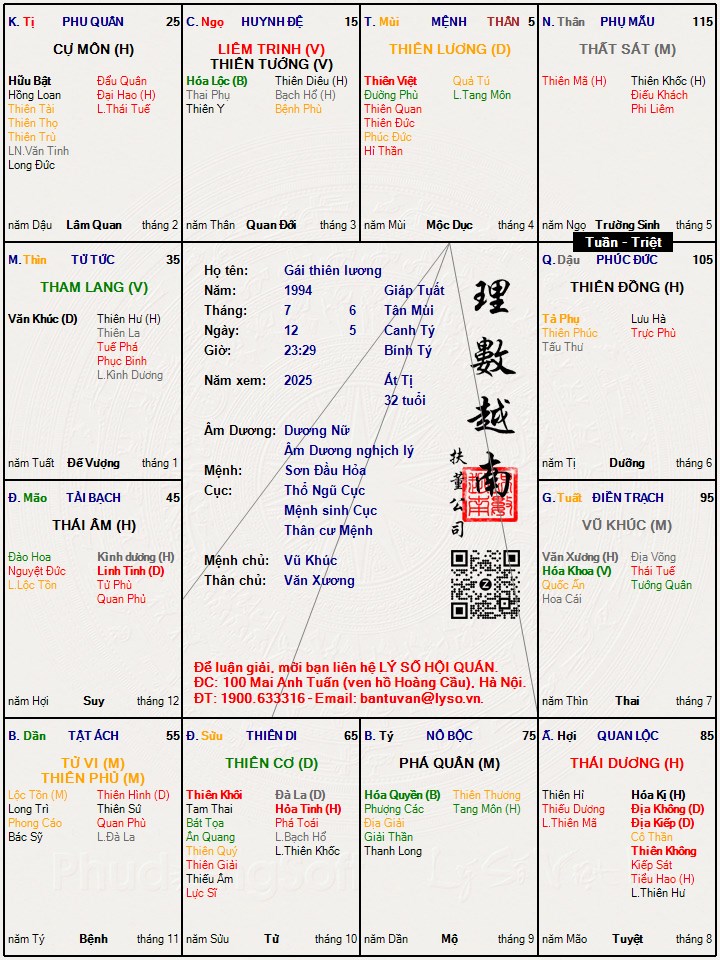 K. Tị PHU QUÂN 25
CỰ MÔN (H)
Hữu Bật Đẩu Quân
Hồng Loan Đại Hao (H)
Thiên Tài L.Thái Tuế
Thiên Thọ
Thiên Trù
LN.Văn Tinh
Long Đức
năm Dậu Lâm Quan tháng 2
C. Ngọ HUYNH ĐỆ 15
LIÊM TRINH (V)
THIÊN TƯỚNG (V)
Hóa Lộc (B) Thiên Diêu (H)
Thai Phụ Bạch Hổ (H)
Thiên Y Bệnh Phù
năm Thân Quan Đới tháng 3
T. Mùi MỆNH THÂN 5
THIÊN LƯƠNG (D)
Thiên Việt Quả Tú
Đường Phù L.Tang Môn
Thiên Quan
Thiên Đức
Phúc Đức
Hỉ Thần
năm Mùi Mộc Dục tháng 4
N. Thân PHỤ MẪU 115
THẤT SÁT (M)
Thiên Mã (H) Thiên Khốc (H)
Điếu Khách
Phi Liêm
năm Ngọ Trường Sinh tháng 5
Tuần - Triệt
M. Thìn TỬ TỨC 35
THAM LANG (V)
Văn Khúc (D) Thiên Hư (H)
Thiên La
Tuế Phá
Phục Binh
L.Kình Dương
năm Tuất Đế Vượng tháng 1
Họ tên: Gái thiên lương
Năm: 1994 Giáp Tuất
Tháng: 7 6 Tân Mùi
Ngày: 12 5 Canh Tý
Giờ: 23:29 Bính Tý
Năm xem: 2025 Ất Tị
32 tuổi
Âm Dương: Dương Nữ
Âm Dương nghịch lý
Mệnh: Sơn Đầu Hỏa
Cục: Thổ Ngũ Cục
Mệnh sinh Cục
Thân cư Mệnh
Mệnh chủ: Vũ Khúc
Thân chủ: Văn Xương
理數越南
扶董公司
Z
Để luận giải, mời bạn liên hệ LÝ SỐ HỘI QUÁN.
ĐC: 100 Mai Anh Tuấn (ven hồ Hoàng Cầu), Hà Nội.
ĐT: 1900.633316 - Email: bantuvan@lyso.vn.
Q. Dậu PHÚC ĐỨC 105
THIÊN ĐỒNG (H)
Tả Phụ Lưu Hà
Thiên Phúc Trực Phù
Tấu Thư
năm Tị Dưỡng tháng 6
Đ. Mão TÀI BẠCH 45
THÁI ÂM (H)
Đào Hoa Kình dương (H)
Nguyệt Đức Linh Tinh (D)
L.Lộc Tồn Tử Phù
Quan Phủ
năm Hợi Suy tháng 12
G. Tuất ĐIỀN TRẠCH 95
VŨ KHÚC (M)
Văn Xương (H) Địa Võng
Hóa Khoa (V) Thái Tuế
Quốc Ấn Tướng Quân
Hoa Cái
năm Thìn Thai tháng 7
B. Dần TẬT ÁCH 55
TỬ VI (M)
THIÊN PHỦ (M)
Lộc Tồn (M) Thiên Hình (D)
Long Trì Thiên Sứ
Phong Cáo Quan Phù
Bác Sỹ L.Đà La
năm Tý Bệnh tháng 11
Đ. Sửu THIÊN DI 65
THIÊN CƠ (D)
Thiên Khôi Đà La (D)
Tam Thai Hỏa Tinh (H)
Bát Tọa Phá Toái
Ân Quang L.Bạch Hổ
Thiên Quý L.Thiên Khốc
Thiên Giải
Thiếu Âm
Lực Sĩ
năm Sửu Tử tháng 10
B. Tý NÔ BỘC 75
PHÁ QUÂN (M)
Hóa Quyền (B) Thiên Thương
Phượng Các Tang Môn (H)
Địa Giải
Giải Thần
Thanh Long
năm Dần Mộ tháng 9
Ấ. Hợi QUAN LỘC 85
THÁI DƯƠNG (H)
Thiên Hỉ Hóa Kị (H)
Thiếu Dương Địa Không (D)
L.Thiên Mã Địa Kiếp (D)
Cô Thần
Thiên Không
Kiếp Sát
Tiểu Hao (H)
L.Thiên Hư
năm Mão Tuyệt tháng 8